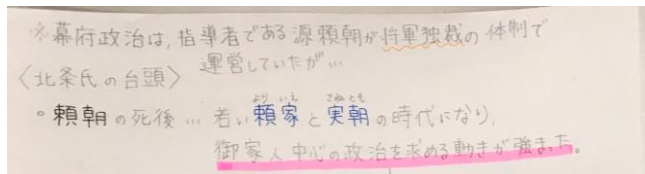 ※幕府政治は、指導者である源頼朝が将軍独裁の体制で
運営していたが…
〈北条氏の台頭〉
よりいえ さねとも
。頼朝の死後… 若い頼家と実朝の時代になり、
御家人中心の政治を求める動きが強まった。